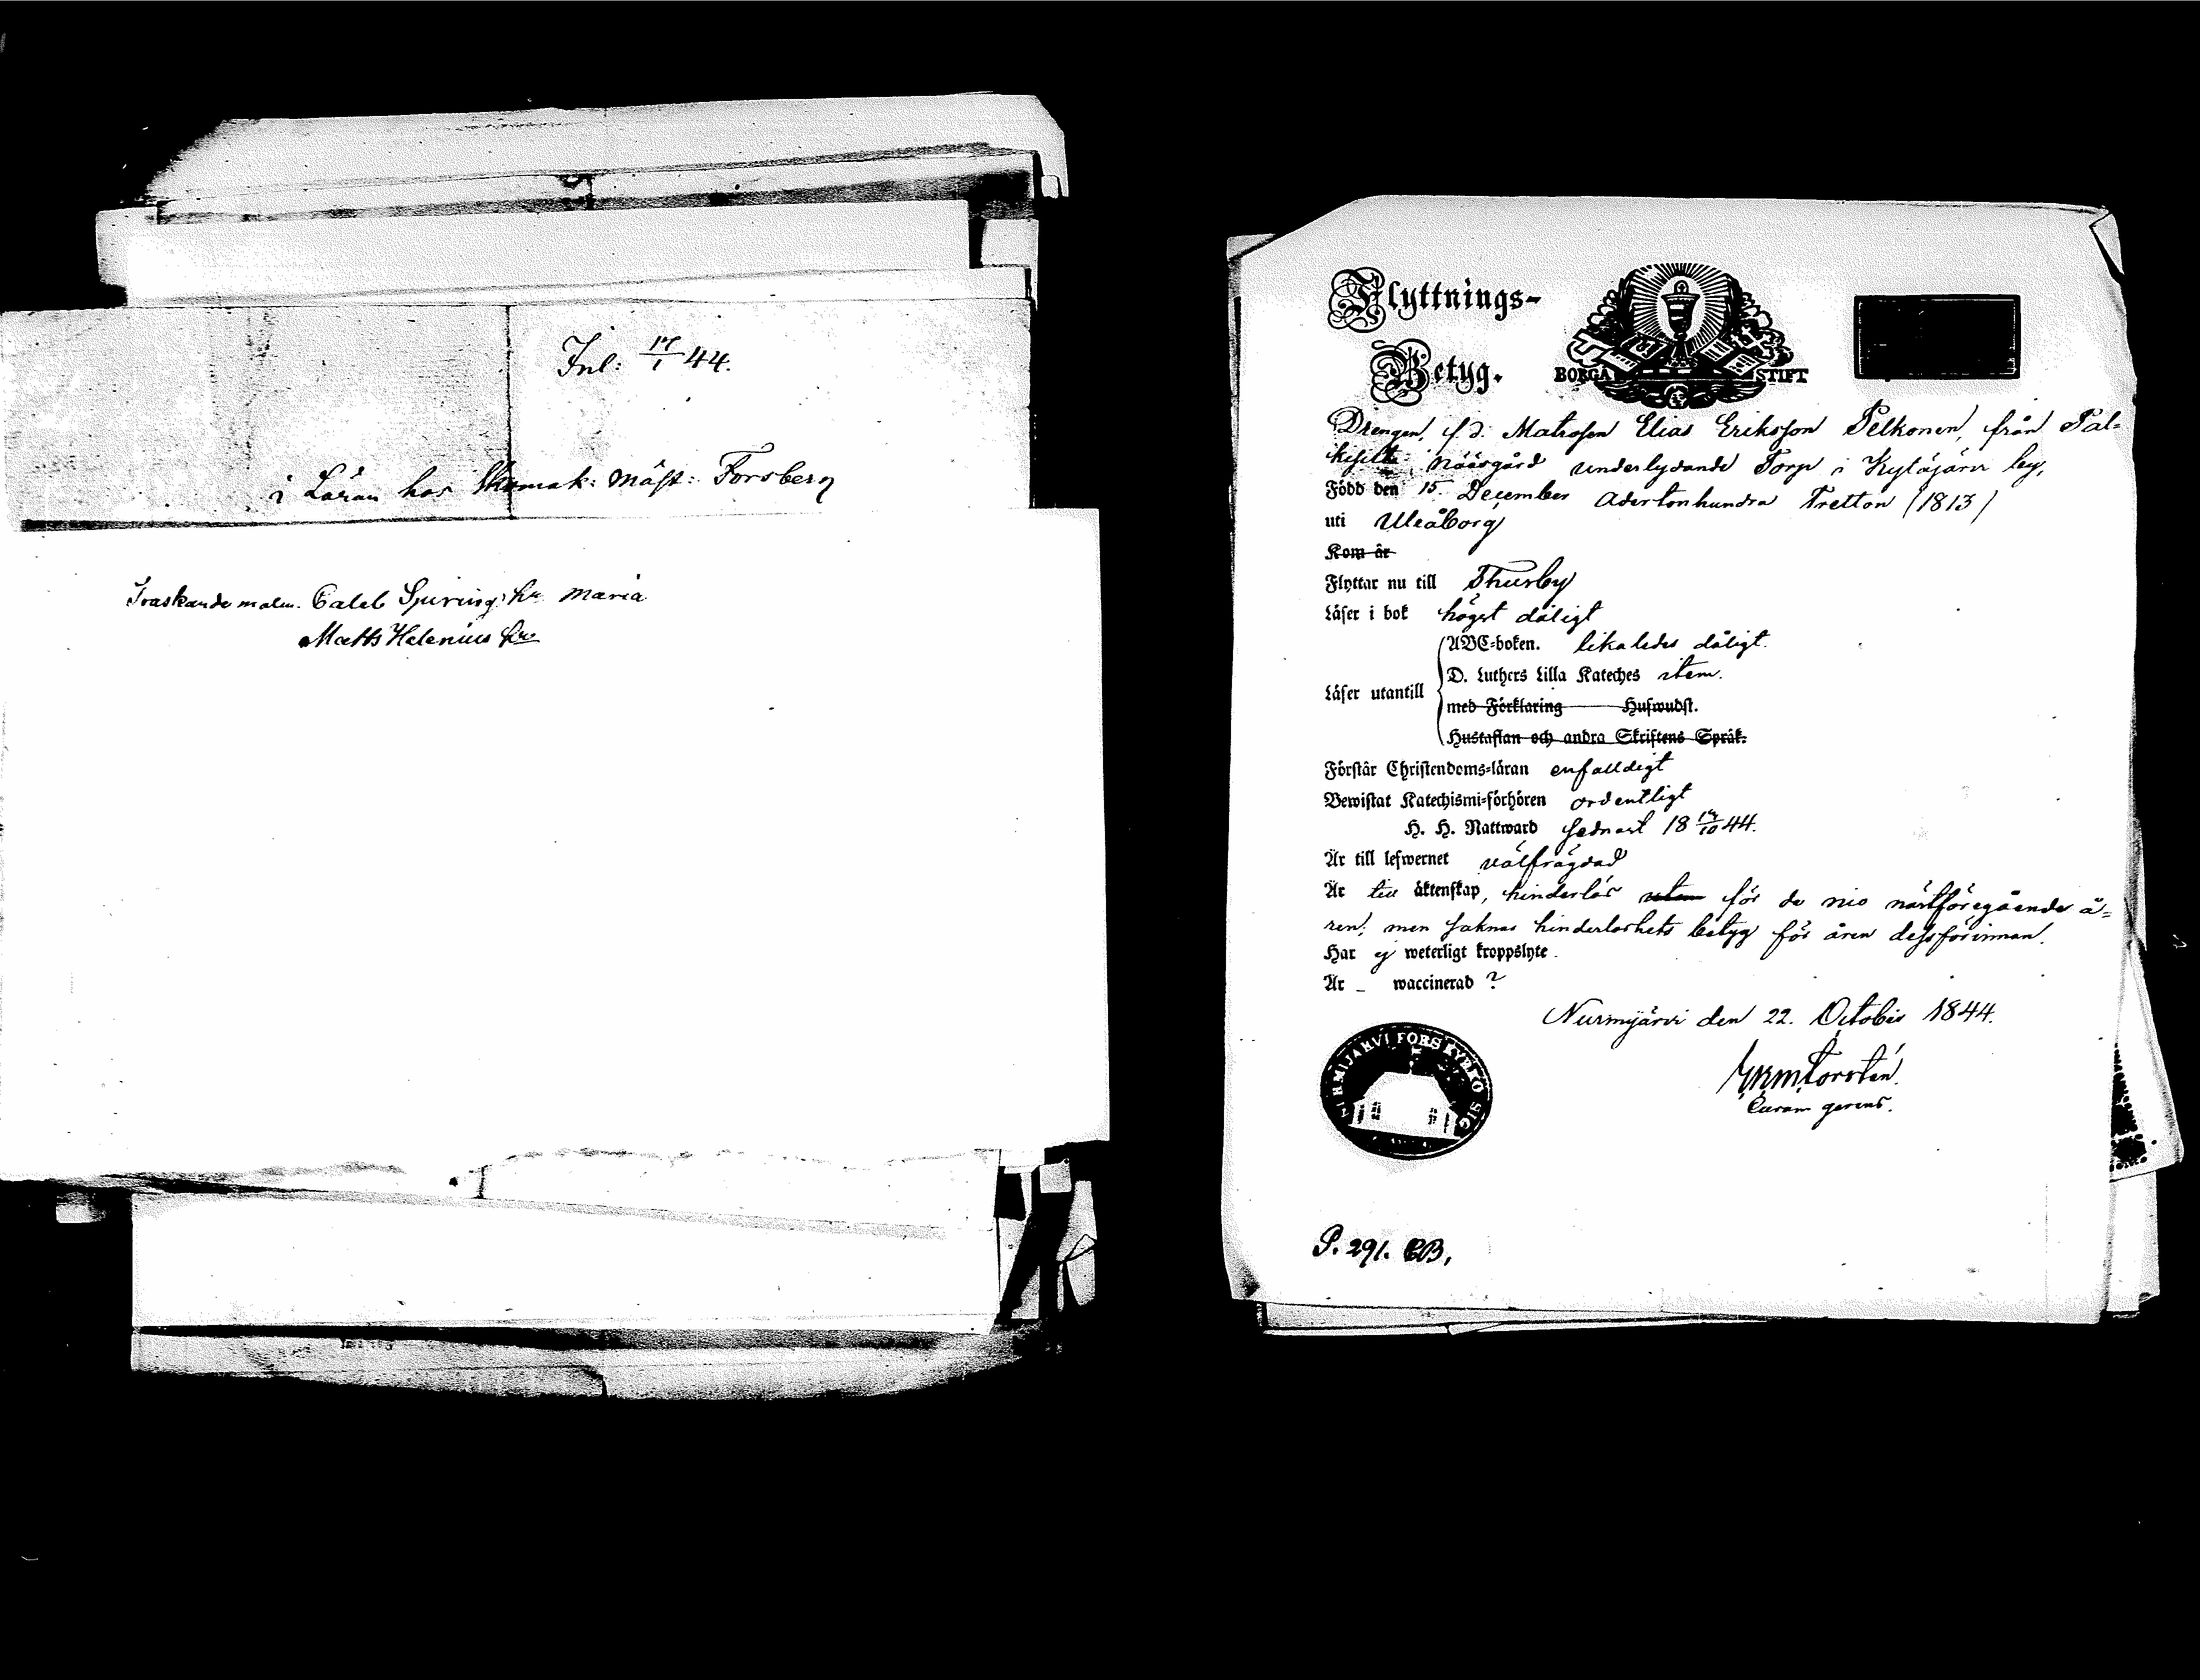 Inl: 17/1 44.
i Läran hos Skomak: Mäst: Forsberg
Träskände malm. Caleb Spiring hu Maria
Matts Helenius hu
Flyttnings-
Betyg.
BORGÅ STIFT
Drengen, f.d. Matrosen Elias Eriksson Pelkonen, från Pal-
näsgård underlydande Torp i Kyläjärvi by,
Född den 15 December Adertonhundra Tretton (1813)
uti Uleåborg
Kom år
Flyttar nu till Thusby
Läser i bok högst dåligt
ABC-boken. likaledes dåligt.
Läser utantill
D. Luthers Lilla Kateches item.
med Förklaring Hufwudst.
Hustaflan och andra Skriftens Språk.
Förstår Christendoms-läran enfalldigt
Bewistat Katechismi-förhören ordentligt
H. H. Nattward sednast 18 /10 44.
Är till lefwernet välfrägdad
Är till äktenskap, hinderlös för de nio nästföregående å-
ren; men saknas hinderlöshets betyg för åren dessförinnan.
Har ej weterligt kroppslyte.
Är _ waccinerad ?
Nurmijärvi den 22. Octobris 1844.
Torstén.
Curam gerens.
NURMIJARVI FORS KYRKO SIG
P. 291. CB,